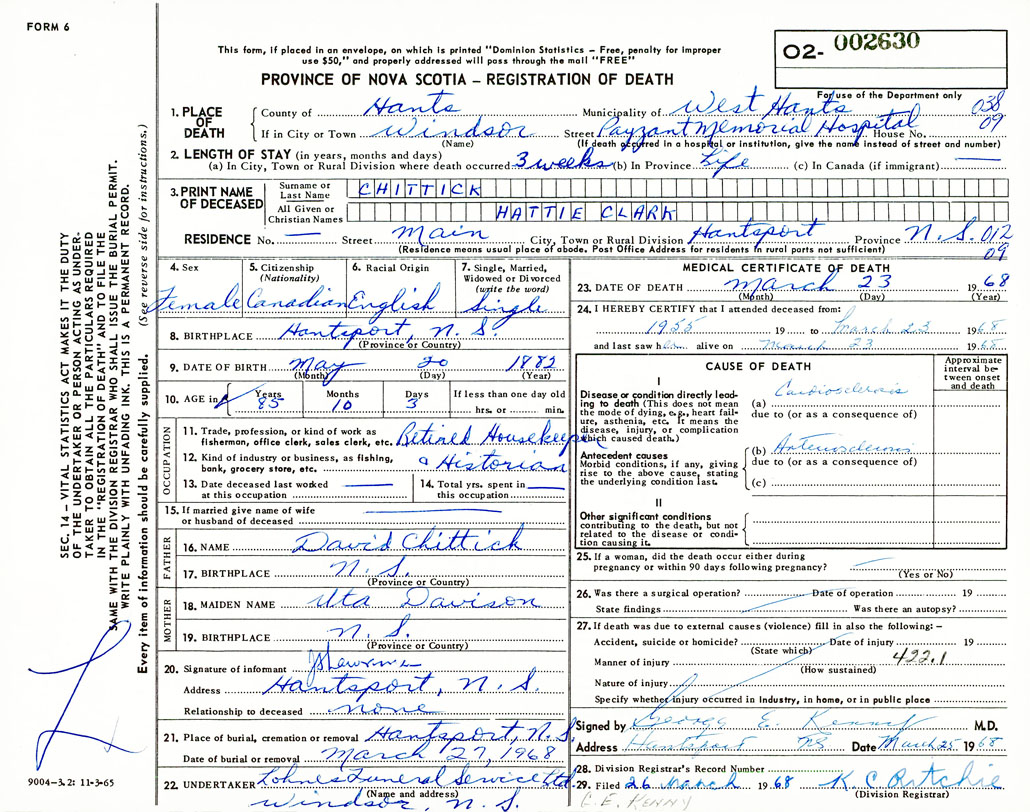 FORM 6
This form, if placed in an envelope, on which is printed "Dominion Statistics – Free, penalty for improper
use $50," and properly addressed will pass through the mail "FREE"
PROVINCE OF NOVA SCOTIA – REGISTRATION OF DEATH
O2- 002630
For use of the Department only
1. PLACE OF DEATH
County of Hants Municipality of West Hants 038
If in City or Town Windsor Street Payzant Memorial Hospital House No. 09
(Name) (If death occurred in a hospital or institution, give the name instead of street and number)
2. LENGTH OF STAY (in years, months and days)
(a) In City, Town or Rural Division where death occurred 3 weeks (b) In Province Life (c) In Canada (if immigrant) —
3. PRINT NAME OF DECEASED
Surname or Last Name CHITTICK
All Given or Christian Names HATTIE CLARK
RESIDENCE No. — Street Main City, Town or Rural Division Hantsport Province N.S. 012
(Residence means usual place of abode. Post Office Address for residents in rural parts not sufficient) 09
4. Sex 5. Citizenship (Nationality) 6. Racial Origin 7. Single, Married, Widowed or Divorced (write the word)
Female Canadian English Single
8. BIRTHPLACE Hantsport, N. S.
(Province or Country)
9. DATE OF BIRTH May 20 1882
(Month) (Day) (Year)
10. AGE in Years Months Days If less than one day old
85 10 3 hrs. or min.
OCCUPATION
11. Trade, profession, or kind of work as fisherman, office clerk, sales clerk, etc. Retired Housekeeper
12. Kind of industry or business, as fishing, bank, grocery store, etc. & Historian
13. Date deceased last worked at this occupation —
14. Total yrs. spent in this occupation —
15. If married give name of wife or husband of deceased —
FATHER
16. NAME David Chittick
17. BIRTHPLACE N. S.
(Province or Country)
MOTHER
18. MAIDEN NAME Uta Davison
19. BIRTHPLACE N. S.
(Province or Country)
20. Signature of informant
Address Hantsport, N. S.
Relationship to deceased none
21. Place of burial, cremation or removal Hantsport, N.S.
Date of burial or removal March 27, 1968
22. UNDERTAKER Lohnes Funeral Service Ltd.
(Name and address)
Windsor, N. S.
MEDICAL CERTIFICATE OF DEATH
23. DATE OF DEATH March 23 1968
(Month) (Day) (Year)
24. I HEREBY CERTIFY that I attended deceased from:
1955 19 to March 23 1968
and last saw her alive on March 23 1968
CAUSE OF DEATH
Approximate interval between onset and death
I
Disease or condition directly leading to death (This does not mean the mode of dying, e.g., heart failure, asthenia, etc. It means the disease, injury, or complication which caused death.)
(a) Cardiosclerosis
due to (or as a consequence of)
Antecedent causes
Morbid conditions, if any, giving rise to the above cause, stating the underlying condition last.
(b) Arteriosclerosis
due to (or as a consequence of)
(c)
II
Other significant conditions
contributing to the death, but not related to the disease or condition causing it.
25. If a woman, did the death occur either during
pregnancy or within 90 days following pregnancy? —
(Yes or No)
26. Was there a surgical operation? Date of operation 19
State findings Was there an autopsy?
27. If death was due to external causes (violence) fill in also the following: –
Accident, suicide or homicide? Date of injury 19
(State which)
Manner of injury 422.1
(How sustained)
Nature of injury
Specify whether injury occurred in Industry, in home, or in public place
Signed by George E. Kenny M.D.
Address Hantsport NS Date March 25 1968
28. Division Registrar's Record Number
29. Filed 26 March 1968 K C Ritchie
(Division Registrar)
G. E. KENNY
SEC. 14 – VITAL STATISTICS ACT MAKES IT THE DUTY
OF THE UNDERTAKER OR PERSON ACTING AS UNDER-
TAKER TO OBTAIN ALL THE PARTICULARS REQUIRED
IN THE "REGISTRATION OF DEATH" AND TO FILE THE
SAME WITH THE DIVISION REGISTRAR WHO SHALL ISSUE THE BURIAL PERMIT.
WRITE PLAINLY WITH UNFADING INK. THIS IS A PERMANENT RECORD.
Every item of information should be carefully supplied. (See reverse side for instructions.)
9004-3.2: 11-3-65